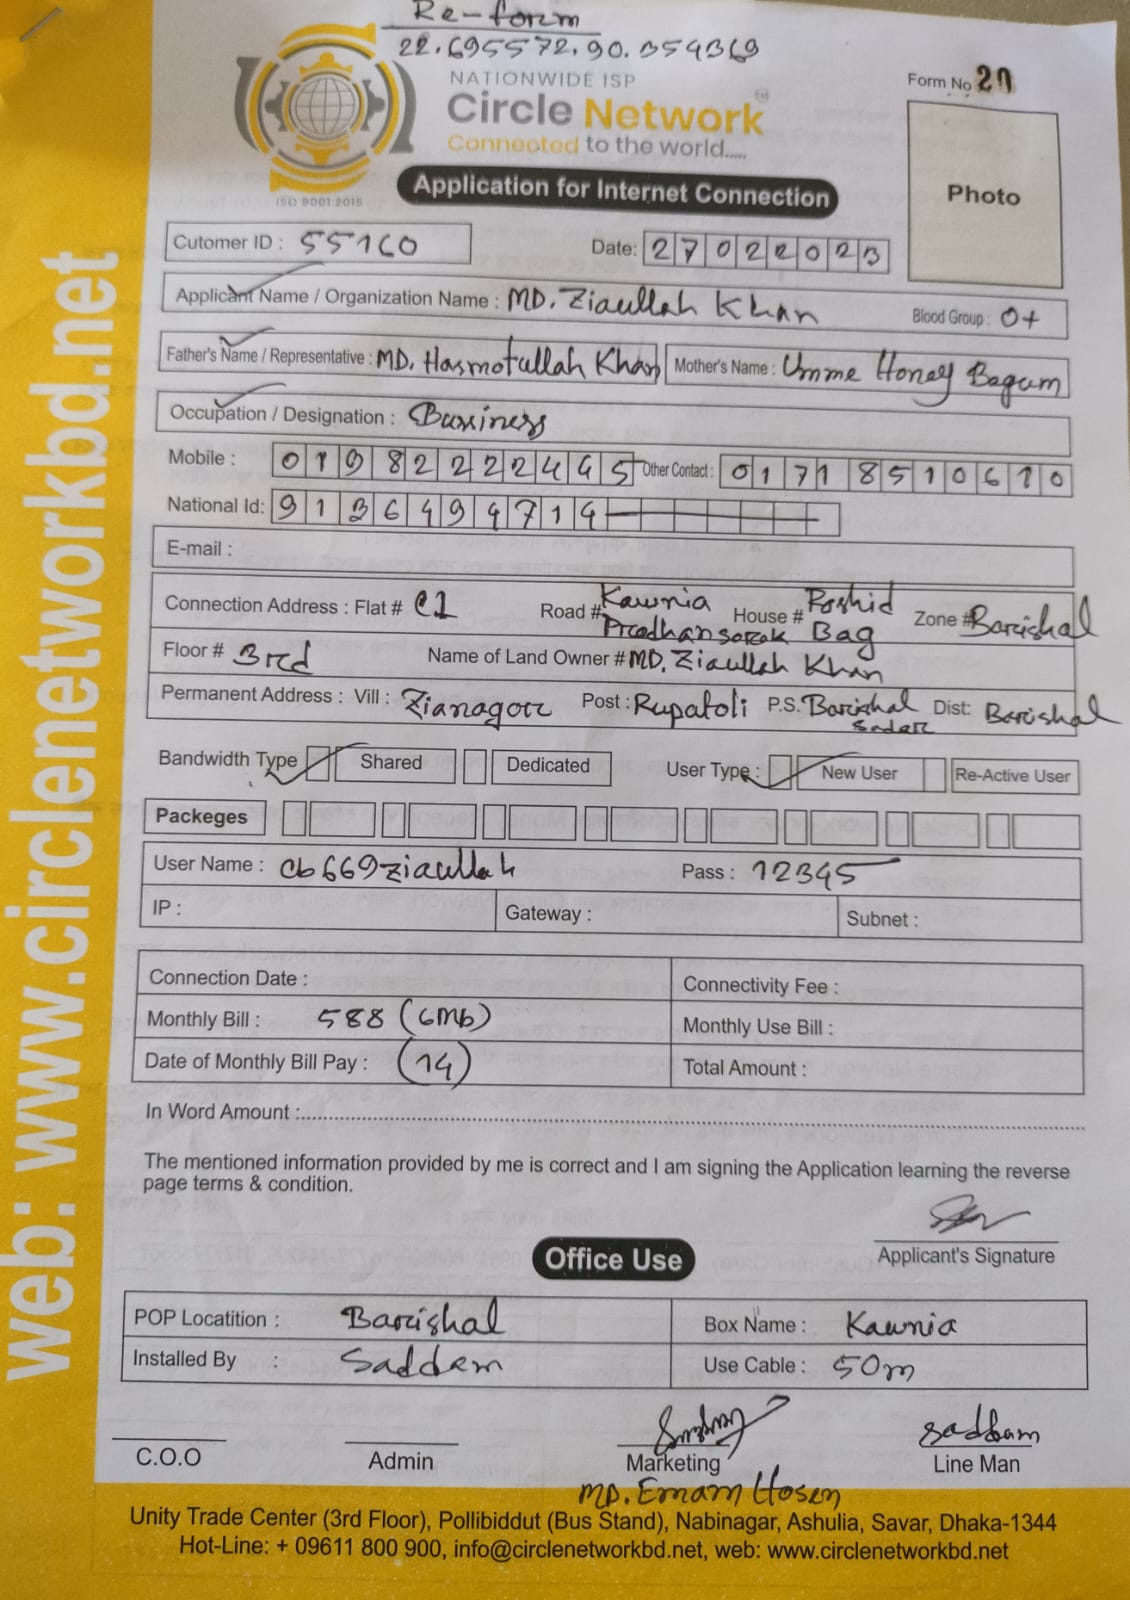 Re-form
22.695572,90.354369
NATIONWIDE ISP
Circle Network
Connected to the world.....
ISO 9001:2015
Form No 20
Photo
Application for Internet Connection
Cutomer ID : 55160 Date: 27022023
Applicant Name / Organization Name : MD. Ziaullah Khan Blood Group : O+
Father's Name / Representative : MD. Hasmotullah Khan Mother's Name : Umme Honey Begum
Occupation / Designation : Bussiness
Mobile : 01982222445 Other Contact : 01718510610
National Id: 9136494714
E-mail :
Connection Address : Flat # C1 Road # Kawnia Pradhan sarak House # Roshid Bag Zone # Barishal
Floor # 3rd Name of Land Owner # MD. Ziaullah Khan
Permanent Address : Vill : Zianagor Post : Rupatoli P.S. Barishal Sadar Dist: Barishal
Bandwidth Type Shared Dedicated User Type : New User Re-Active User
Packeges
User Name : cb669ziaullah Pass : 12345
IP : Gateway : Subnet :
Connection Date : Connectivity Fee :
Monthly Bill : 588 (6Mb) Monthly Use Bill :
Date of Monthly Bill Pay : (14) Total Amount :
In Word Amount :
The mentioned information provided by me is correct and I am signing the Application learning the reverse
page terms & condition.
Applicant's Signature
Office Use
POP Locatition : Barishal Box Name : Kawnia
Installed By : Saddam Use Cable : 50m
Saddam
C.O.O Admin Marketing Line Man
MD. Emam Hosen
Unity Trade Center (3rd Floor), Pollibiddut (Bus Stand), Nabinagar, Ashulia, Savar, Dhaka-1344
Hot-Line: + 09611 800 900, info@circlenetworkbd.net, web: www.circlenetworkbd.net
web: www.circlenetworkbd.net